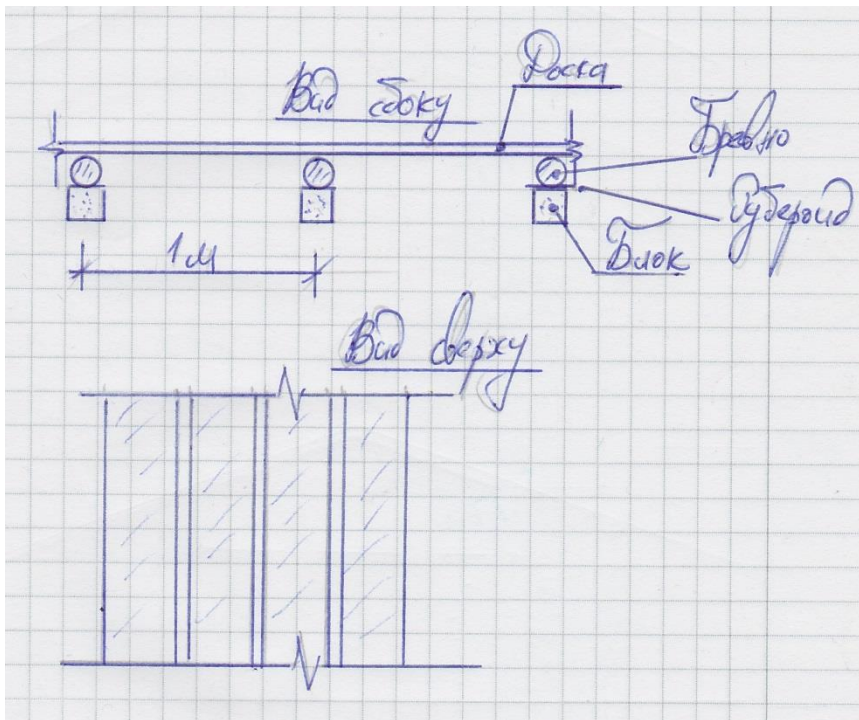 Вид сбоку
Доска
Бревно
Рубероид
Блок
1м
Вид сверху